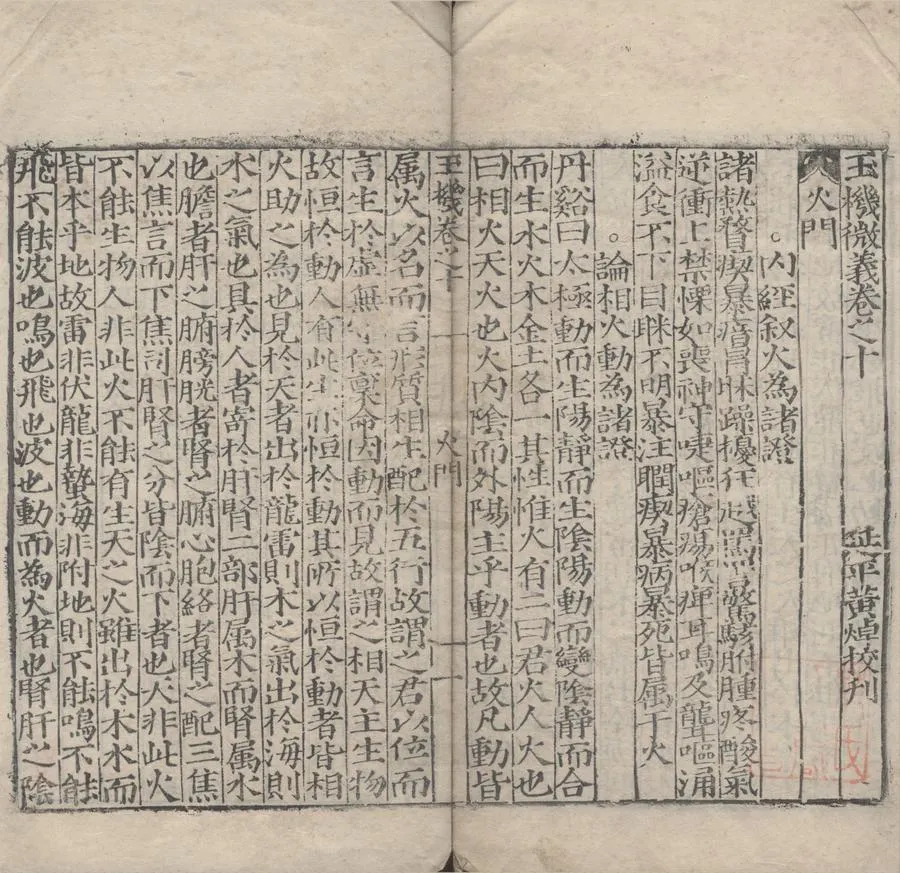 玉機微義卷之十　延平黃焯校刊
火門
內經叙火為諸證
諸熱瞀瘈暴瘖冒昧躁擾狂越罵詈驚駭胕腫疼酸氣
逆衝上禁慄如喪神守嚏嘔瘡瘍喉痺耳鳴及聾嘔涌
溢食不下目眜不明暴注瞤瘈暴病暴死皆属于火
論相火動為諸證
丹谿曰太極動而生陽靜而生陰陽動而變陰靜而合
而生水火木金土各一其性惟火有二曰君火人火也
曰相火天火也火內陰而外陽主乎動者也故凡動皆
玉機卷之十　火門　一
属火以名而言形質相生配於五行故謂之君以位而
言生於虛無守位稟命因動而見故謂之相天主生物
故恒於動人有此生亦恒於動其所以恒於動者皆相
火助之為也見於天者出於龍雷則木之氣出於海則
水之氣也具於人者寄於肝腎二部肝属木而腎属水
也膽者肝之腑膀胱者腎之腑心胞絡者腎之配三焦
以焦言而下焦司肝腎之分皆陰而下者也天非此火
不能生物人非此火不能有生天之火雖出於木水而
皆本乎地故雷非伏龍非蟄海非附地則不能鳴不能
飛不能波也鳴也飛也波也動而為火者也腎肝之陰